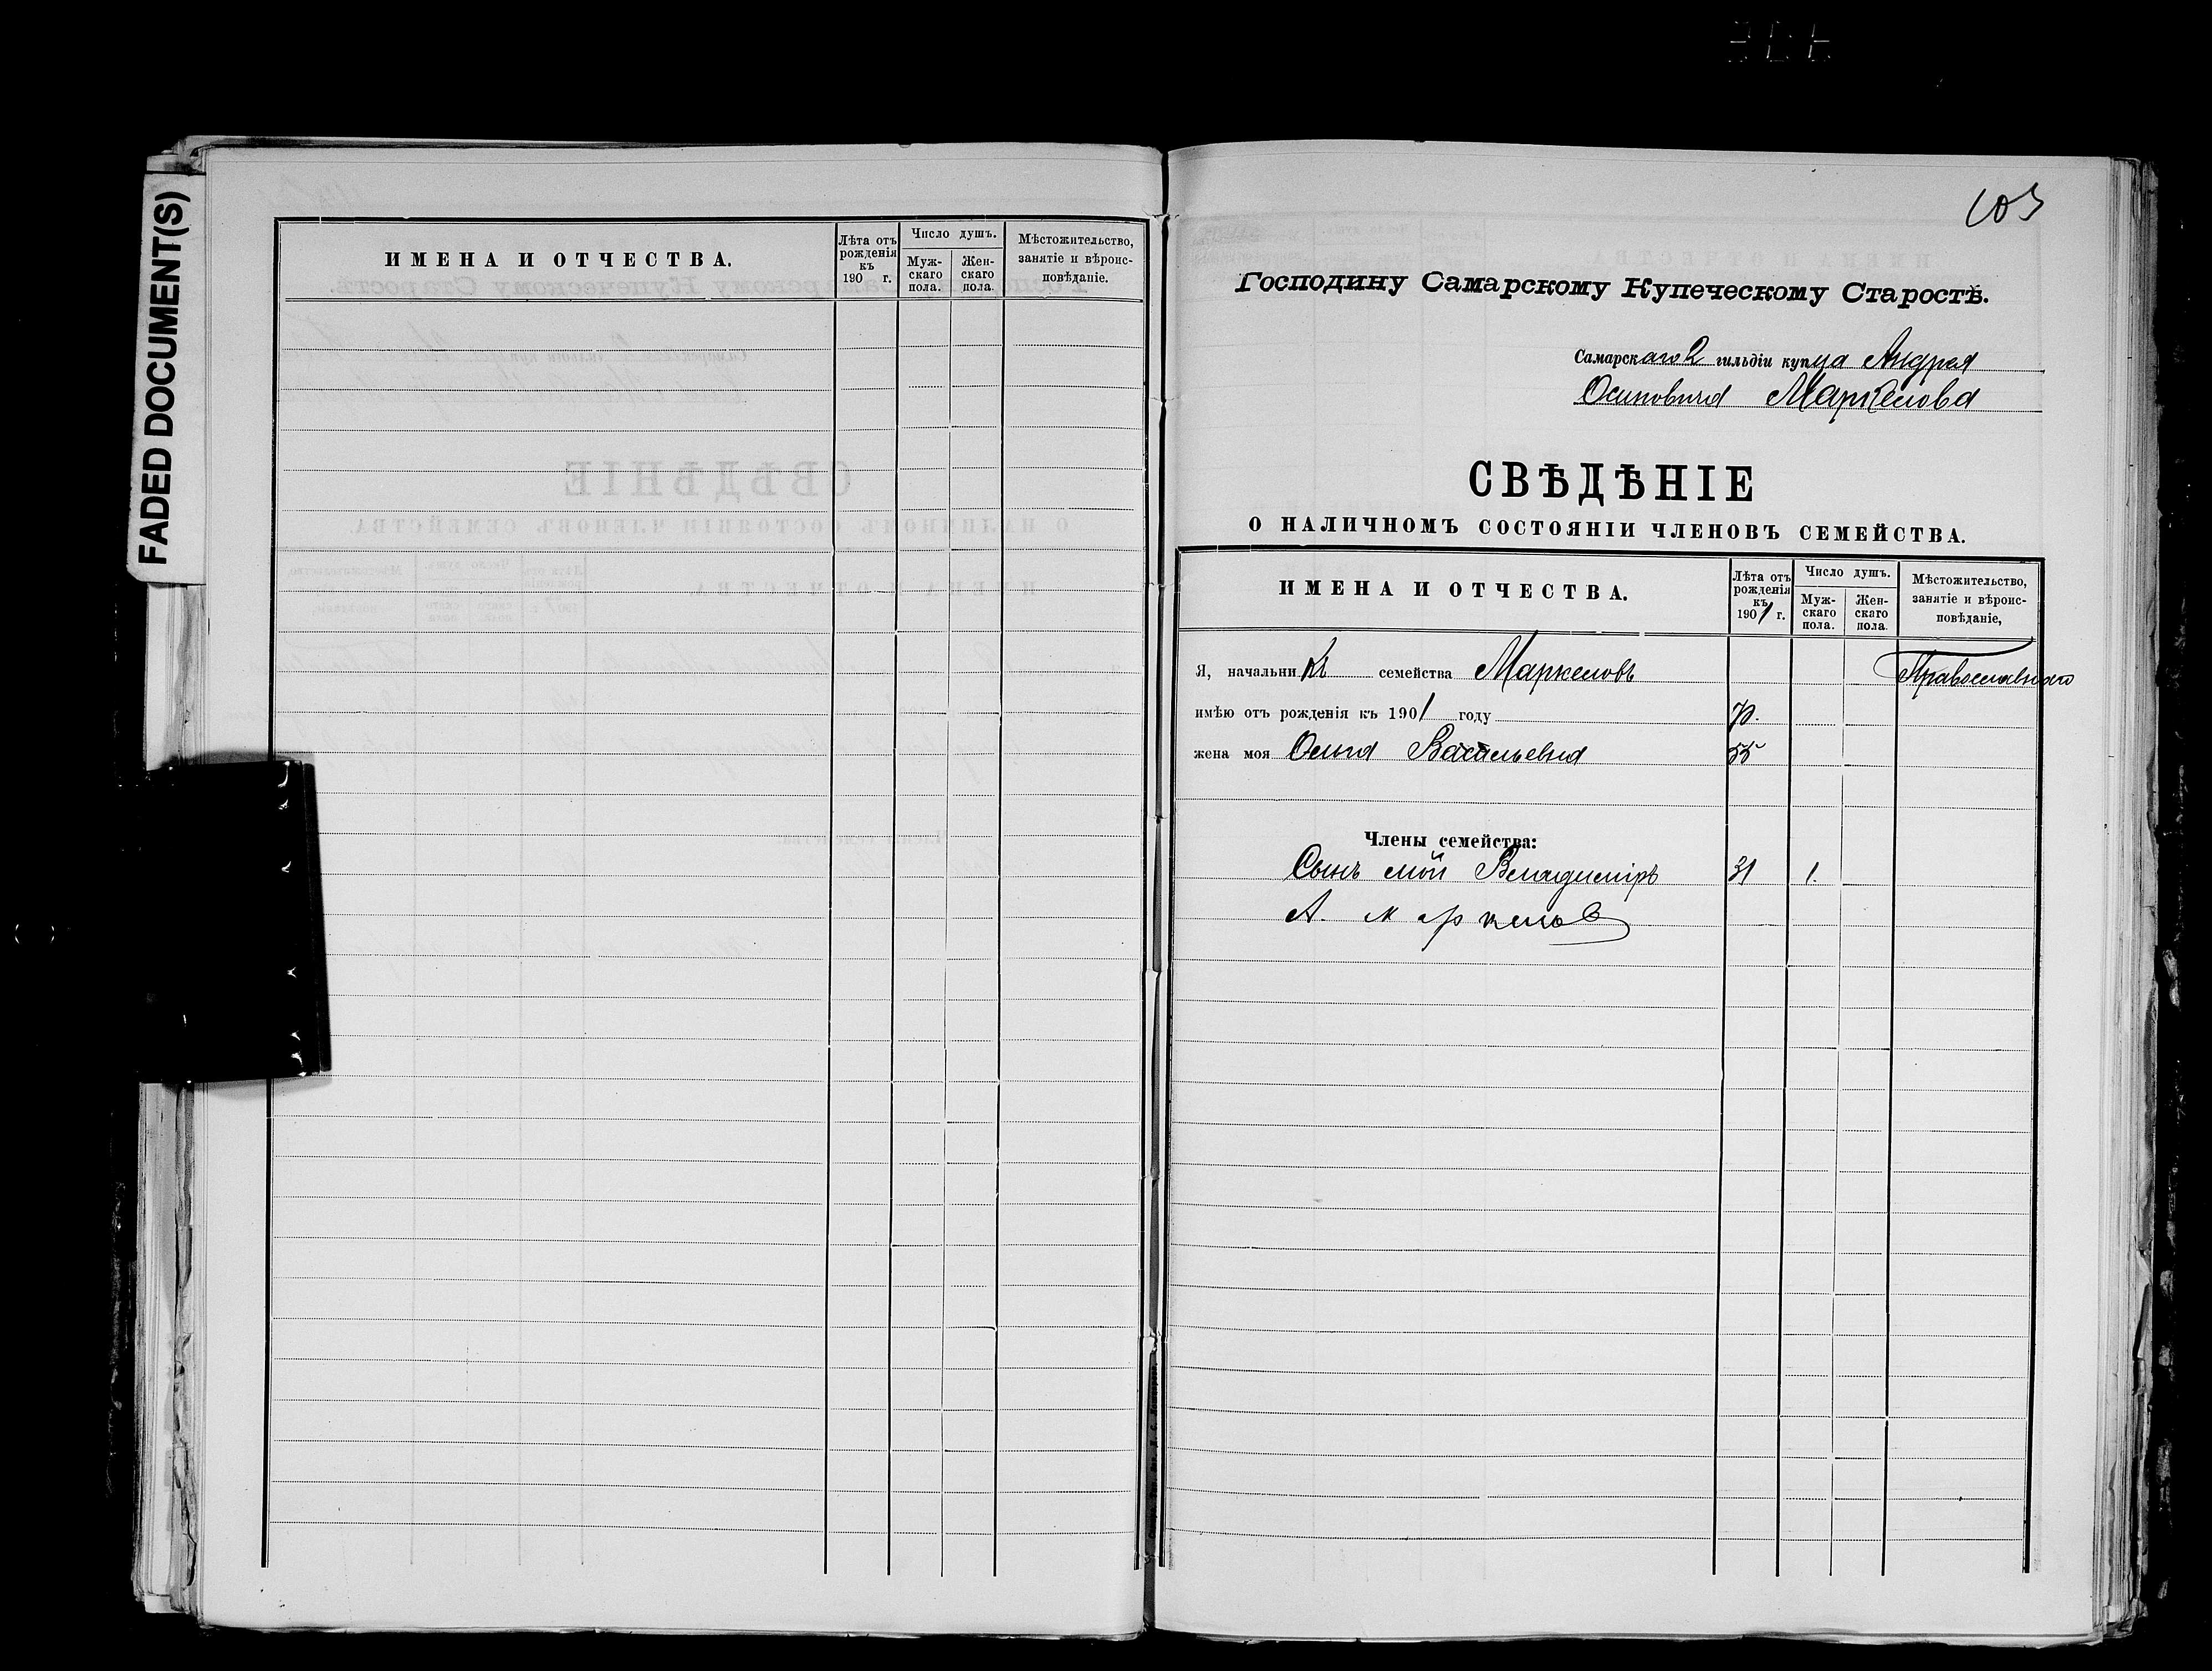 FADED DOCUMENT(S)
ИМЕНА И ОТЧЕСТВА.
Лѣта отъ рожденія къ 190 г.
Число душъ.
Муж-скаго пола.
Жен-скаго пола.
Мѣстожительство, занятіе и вѣроис-повѣданіе.
103
Господину Самарскому Купеческому Старостѣ.
Самарскаго 2 гильдіи купца Андрея
Осиповича Маркелова
СВѢДѢНІЕ
О НАЛИЧНОМЪ СОСТОЯНІИ ЧЛЕНОВЪ СЕМЕЙСТВА.
ИМЕНА И ОТЧЕСТВА.
Лѣта отъ рожденія къ 1901 г.
Число душъ.
Муж-скаго пола.
Жен-скаго пола.
Мѣстожительство, занятіе и вѣроис-повѣданіе,
Я, начальникъ семейства Маркеловъ Православнаго
имѣю отъ рожденія къ 1901 году
жена моя Ольга Васильевна 55
Члены семейства:
Сынъ мой Владиміръ 31 1.
А. Маркелов